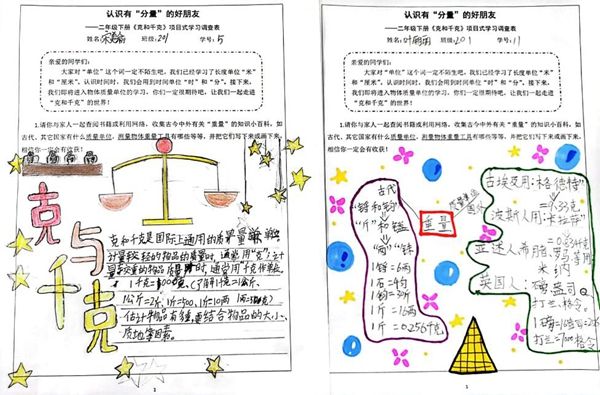 认识有“分量”的好朋友
——二年级下册《克和千克》项目式学习调查表
姓名: 班级:201 学号:5
亲爱的同学们:
大家对“单位”这个词一定不陌生吧,我们已经学习了长度单位“米”
和“厘米”,认识时间时,我们会用到时间单位“时”和“分”,接下来,
我们即将进入物体质量单位的学习,你们一定很期待吧,让我们一起走进
“克和千克”的世界!
1.请你与家人一起查阅书籍或利用网络,收集古今中外有关“重量”的知识小百科,如
古代、其它国家有什么质量单位,测量物体重量工具有哪些等等,并把它们写下来或画下来,
相信你一定会有收获!
克与千克
克和千克是国际上通用的质量单
计量较轻的物品的质量时,通常用“克”
的物品 时,通常用千克作单位
1千克=1000克, 1千克=1公斤
1公斤=2斤,1斤=500,1斤=10两
估计物品有多重,要结合物品的大小、
质地等因素。
认识有“分量”的好朋友
——二年级下册《克和千克》项目式学习调查表
姓名: 班级:201 学号:11
亲爱的同学们:
大家对“单位”这个词一定不陌生吧,我们已经学习了长度单位“米”
和“厘米”,认识时间时,我们会用到时间单位“时”和“分”,接下来,
我们即将进入物体质量单位的学习,你们一定很期待吧,让我们一起走进
“克和千克”的世界!
1.请你与家人一起查阅书籍或利用网络,收集古今中外有关“重量”的知识小百科,如
古代、其它国家有什么质量单位,测量物体重量工具有哪些等等,并把它们写下来或画下来,
相信你一定会有收获!
古代
“斤”和
“两”“铢”
1石=4钧
1钧=30斤
1斤=16两
1斤=0.256千克
重量
古埃及用:“格德特”
=9.33克
波斯人用:“卡拉萨”
=0.834千克
英国人:
打兰、格令